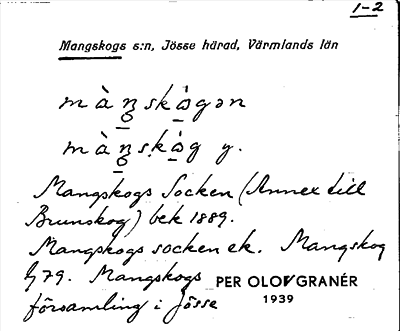 1-2
Mangskogs s:n, Jösse härad, Värmlands län
màŋskógən
màŋskóg y.
Mangskogs Socken (Annex till
Brunskog) bek 1889.
Mangskogs socken ek. Mangskog
79. Mangskogs PER OLOV GRANÉR
församling i Jösse 1939